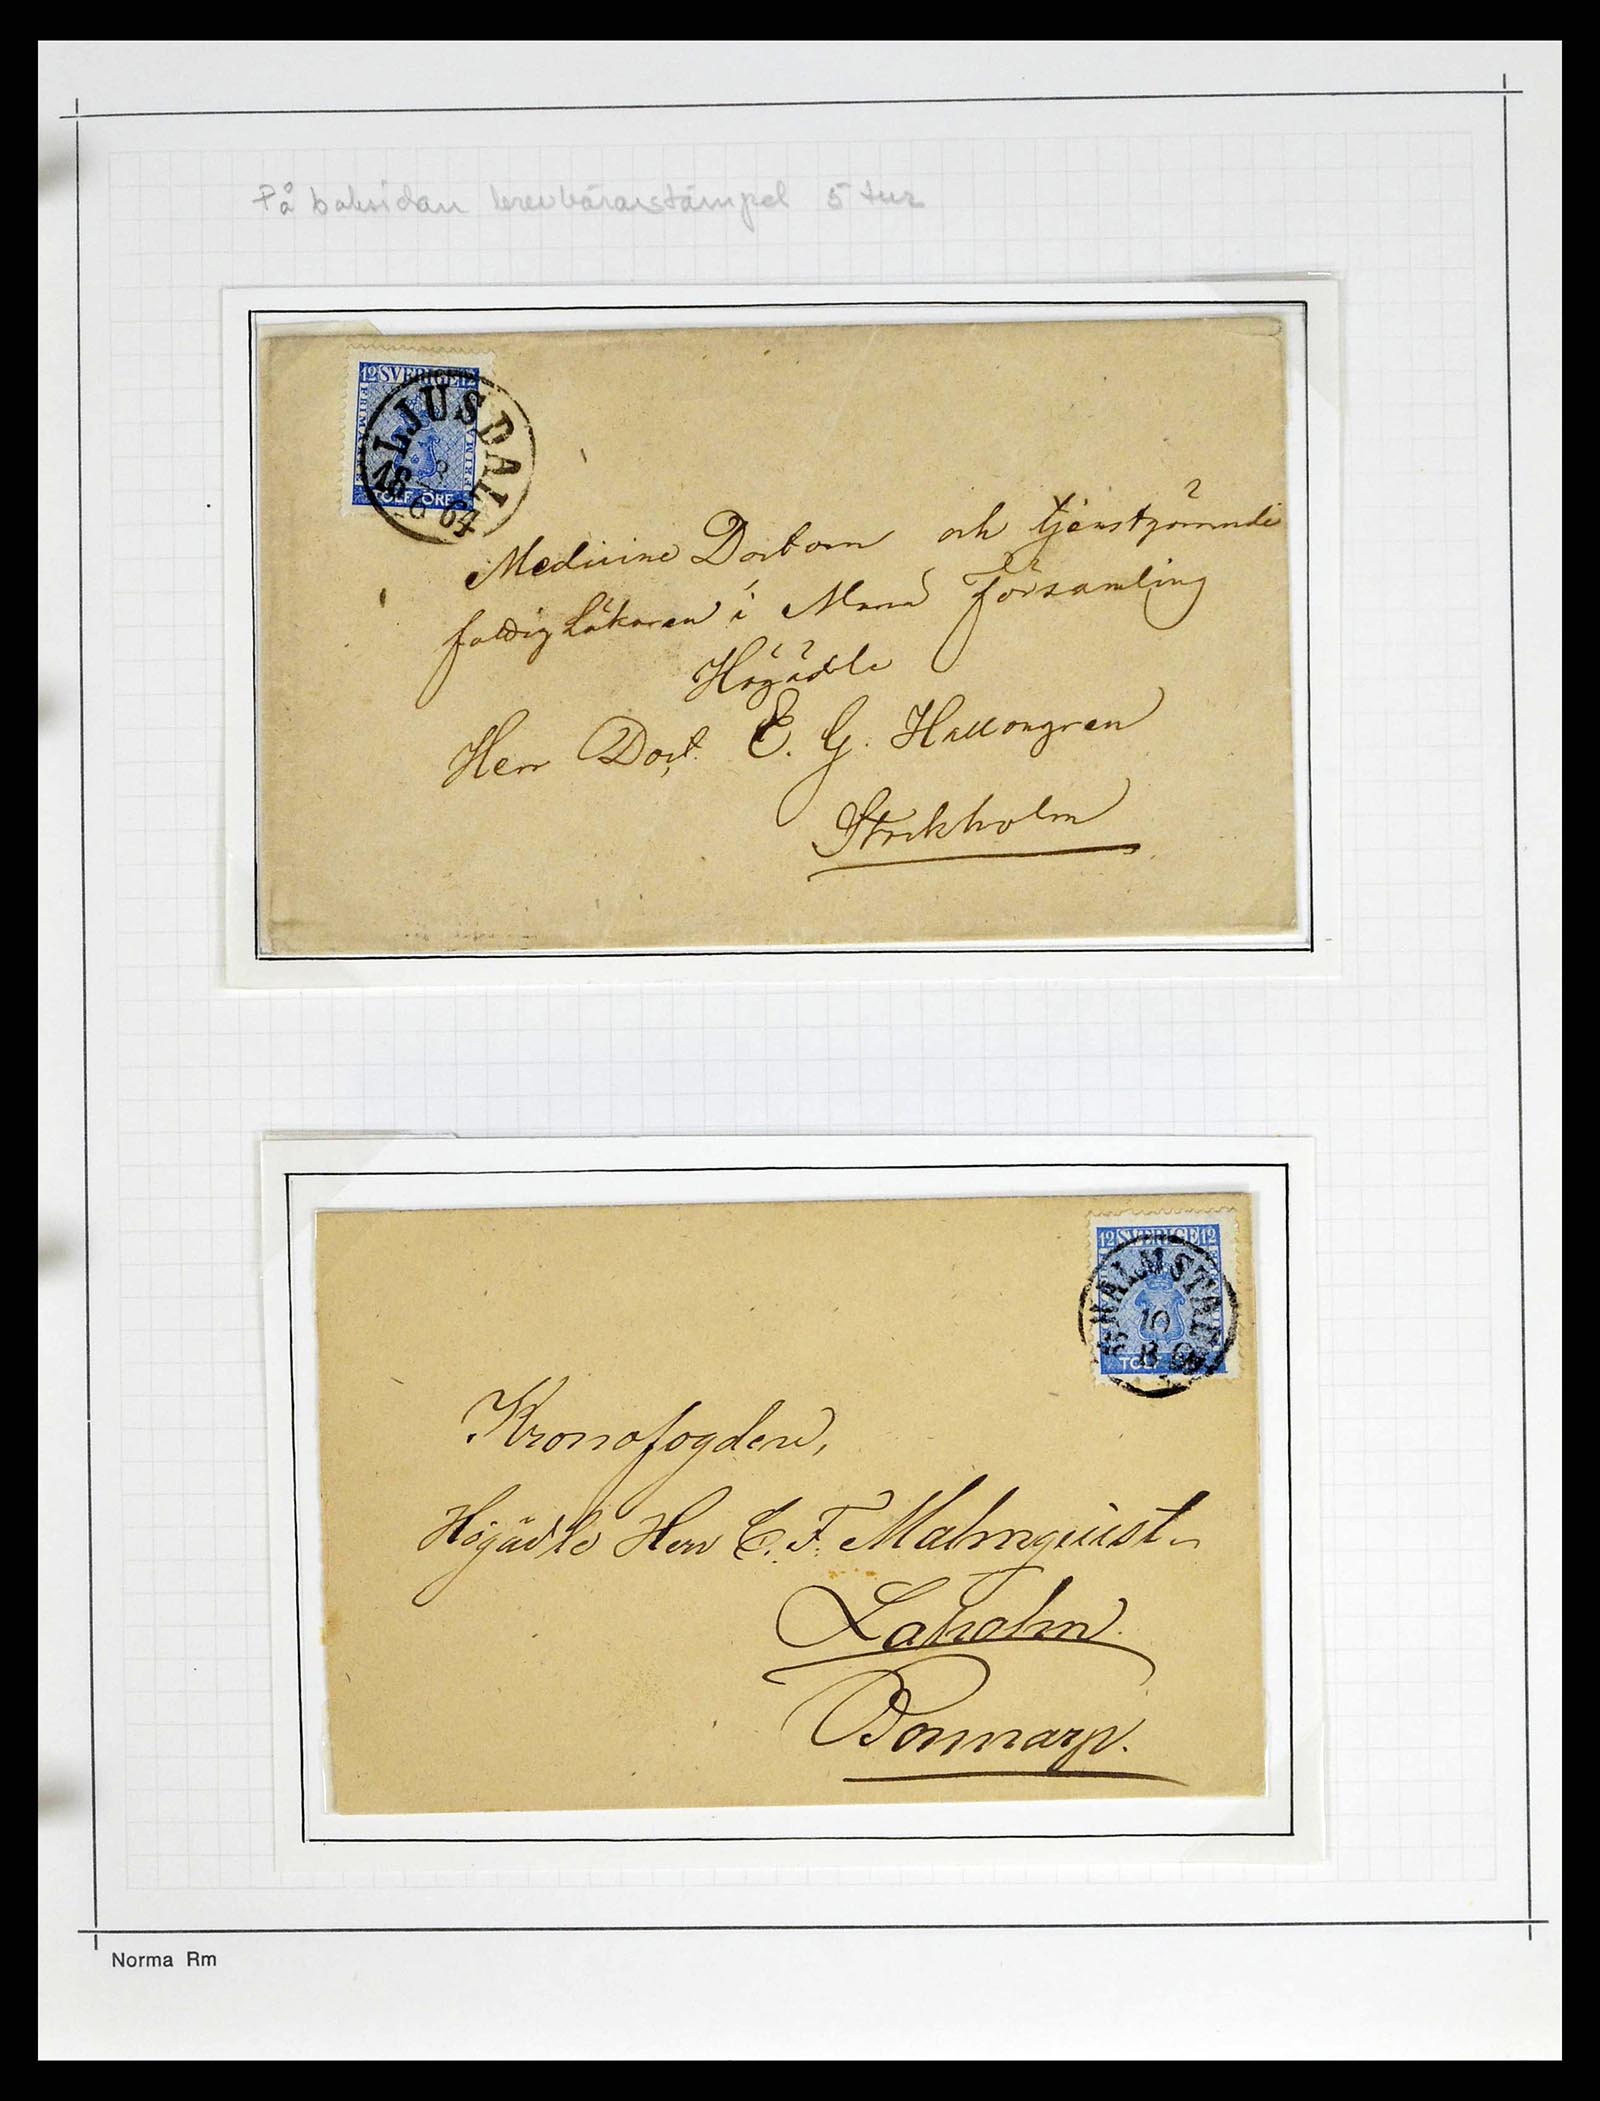 På baksidan brevbärarstämpel 5 tur
12 SVERIGE 12
FRIMÄRKE
TOLF ÖRE
LJUSDAL
18 64
Medicine Doctorn och tjenstgörande
fattigläkaren i Maria Församling
Högädle
Herr Doct. E. G. Hallongren
Stockholm
12 SVERIGE 12
TOLF
HALMSTAD
10
Kronofogden,
Högädle Herr C. F. Malmquist
Laholm
Dömmarp.
Norma Rm